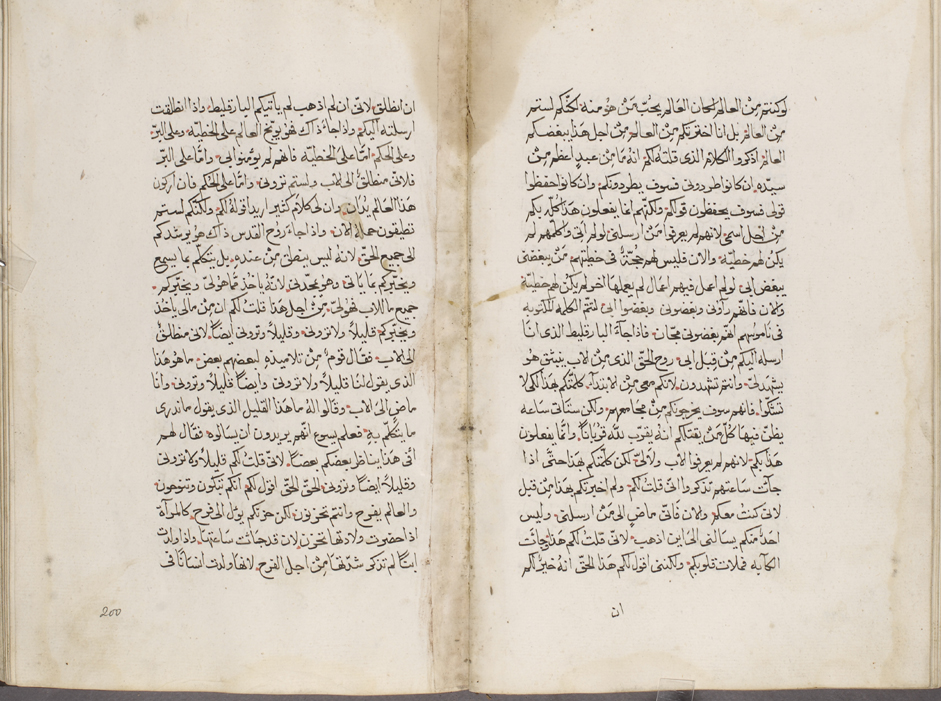 لو كنتم من العالم لكان العالم يحب من هو منه لكنكم لستم
من العالم بل انا اخترتكم من العالم من اجل هذا يبغضكم
العالم اذكروا الكلام الذى قلته لكم انه ما من عبد اعظم من
سيده ان كانوا طردونى فسوف يطردونكم وان كانوا حفظوا
قولى فسوف يحفظون قولكم ولكنهم انما يفعلون هذا كله بكم
من اجل اسمى لانهم لم يعرفوا من ارسلنى لو لم اتى واكلمهم لم
يكن لهم خطيّة والان فليس لهم حجة فى خطيتهم من يبغضنى
يبغض ابى لو لم اعمل فيهم اعمال لم يعملها اخر لم يكن لهم خطيّة
والان فانهم رأونى وبغضونى وبغضوا ابى لتتم الكلمه المكتوبه
فى ناموسهم انهم بغضونى مجّان فاذا جاء البارقليط الذى انا
ارسله اليكم من قبل ابى روح الحق الذى من الاب ينبثق هو
يشهد لى وانتم تشهدون لانكم معى من الابتداء كلمتكم هذا لكى لا
تشكّوا فانهم سوف يخرجونكم من مجامعهم ولكن ستاتى ساعه
يظنّ فيها كلّ من يقتلكم انه يقرّب لله قربانا وانما يفعلون
هذا بكم لانهم لم يعرفوا الاب ولا لى لكن كلمتكم بهذا حتى اذا
جآت ساعتهم تذكروا انى قلت لكم ولم اخبركم بهذا من قبل
لانى كنت معكم والان فانى ماض الى من ارسلنى وليس
احد منكم يسالنى الى اين اذهب لانى قلت لكم هذا وجآت
الكآبه فملات قلوبكم ولكننى اقول لكم هذا الحق انه خير لكم
ان
ان انطلق لانّى ان لم اذهب لم ياتيكم البارقليط واذا انطلقت
ارسلته اليكم واذا جاء ذاك فهو يوبّخ العالم على الخطيّه وعلى البرّ
وعلى الحكم امّا على الخطيّه فانهم لم يؤمنوا بى وامّا على البرّ
فلانى منطلق الى الاب ولستم ترونى وامّا على الحكم فان اركون
هذا العالم يدان وان لى كلام كثير اريد اقوله لكم ولكنكم لستم
تطيقون حمله الان واذا جاء روح القدس ذاك هو يرشدكم
الى جميع الحق لانه ليس ينطق من عنده بل يتكلم بما يسمع
ويخبركم بما ياتى وهو يمجدنى لانه ياخذ ممّا هو لى ويخبركم
جميع ما للاب فهو لى من اجل هذا قلت لكم ان من مالى ياخذ
ويخبركم قليلا ولا ترونى وقليلا وترونى ايضا لانى منطلق
الى الاب فقال قوم من تلاميذه لبعضهم بعض ما هو هذا
الذى يقول لنا قليلا ولا ترونى وايضا قليلا وترونى وانا
ماض الى الاب وقالوا له ما هذا القليل الذى يقول ما ندرى
ما يتكلم به فعلم يسوع انهم يريدون ان يسالوه فقال لهم
أفى هذا يناظر بعضكم بعضا لانى قلت لكم قليلا ولا ترونى
وقليلا ايضا وترونى الحق الحق اقول لكم انكم تبكون وتنوحون
والعالم يفرح وانتم تحزنون لكن حزنكم يؤل الى فرح كالمرأة
اذا حضرت ولادتها تحزن لان قد جائت ساعتها واذا ولدت
ابنا لم تذكر شدّتها من اجل الفرح لانها ولدت انسانا فى
200